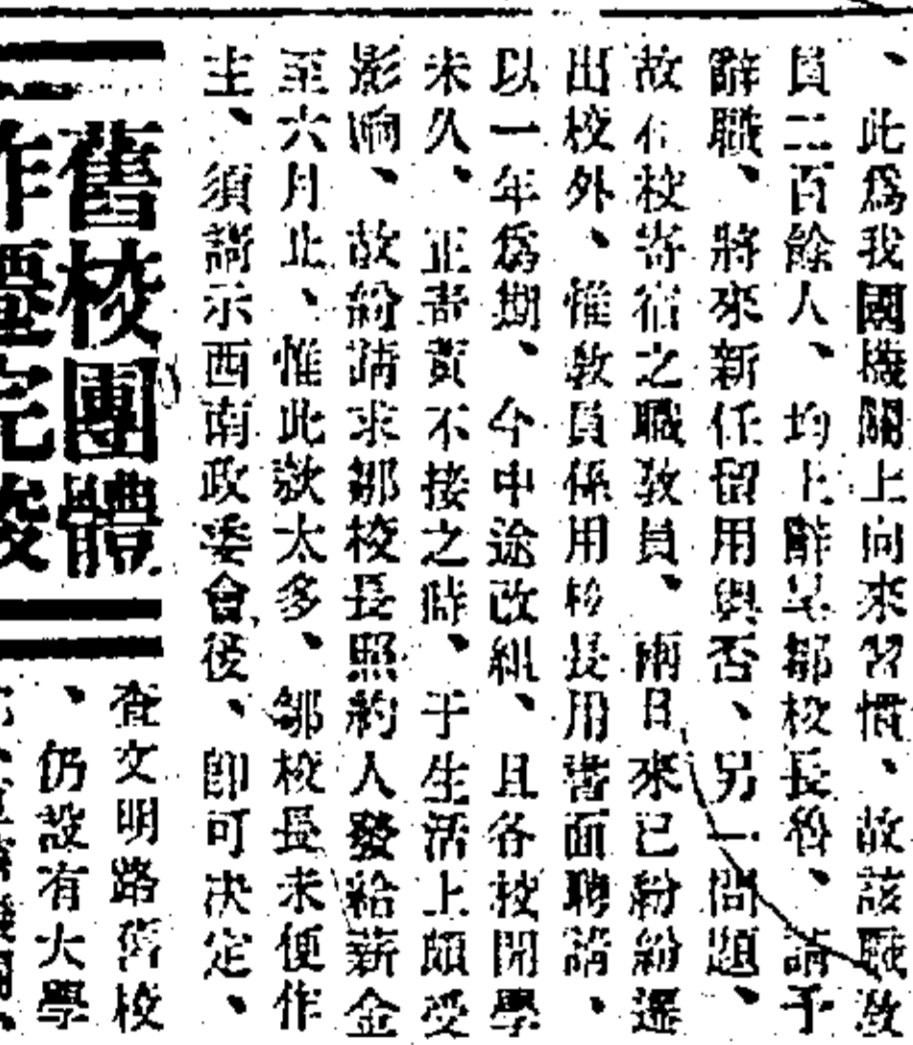 、此爲我國機關上向來習慣、故該職敎
員二百餘人、均上辭呈鄒校長魯、請予
辭職、將來新任留用與否、另一問題、
故在校寄宿之職敎員、兩日來已紛紛遷
出校外、惟敎員係用校長用書面聘請、
以一年爲期、今中途改組、且各校開學
未久、正靑黃不接之時、于生活上頗受
影响、故紛請求鄒校長照約人發給薪金
至六月止、惟此欵太多、鄒校長未便作
主、須請示西南政委會後、卽可决定、
舊校團體
昨遷完竣
查文明路舊校
、仍設有大學